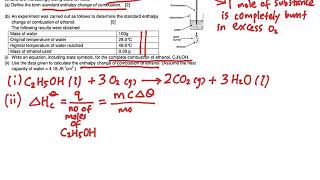 (a) Define the term standard enthalpy change of combustion. [2]
1 mole of substance
is completely burnt
in excess O₂
(b) An experiment was carried out as follows to determine the standard enthalpy
change of combustion of ethanol. [5]
The following results were obtained
Mass of water 100g
Original temperature of water
Highest temperature of water reached 48.0°C
Mass of ethanol used 0.33 g
(i) Write an equation, including state symbols, for the complete combustion of ethanol, C₂H₅OH.
(ii) Use the data given to calculate the enthalpy change of combustion of ethanol. (Assume the heat
capacity of water = 4.18 JK⁻¹cm⁻³)
(i) C₂H₅OH (l) + 3O₂ (g) → 2CO₂ (g) + 3H₂O (l)
(ii) ΔHc⦵ = q / no of moles of C₂H₅OH = mcΔθ / mo